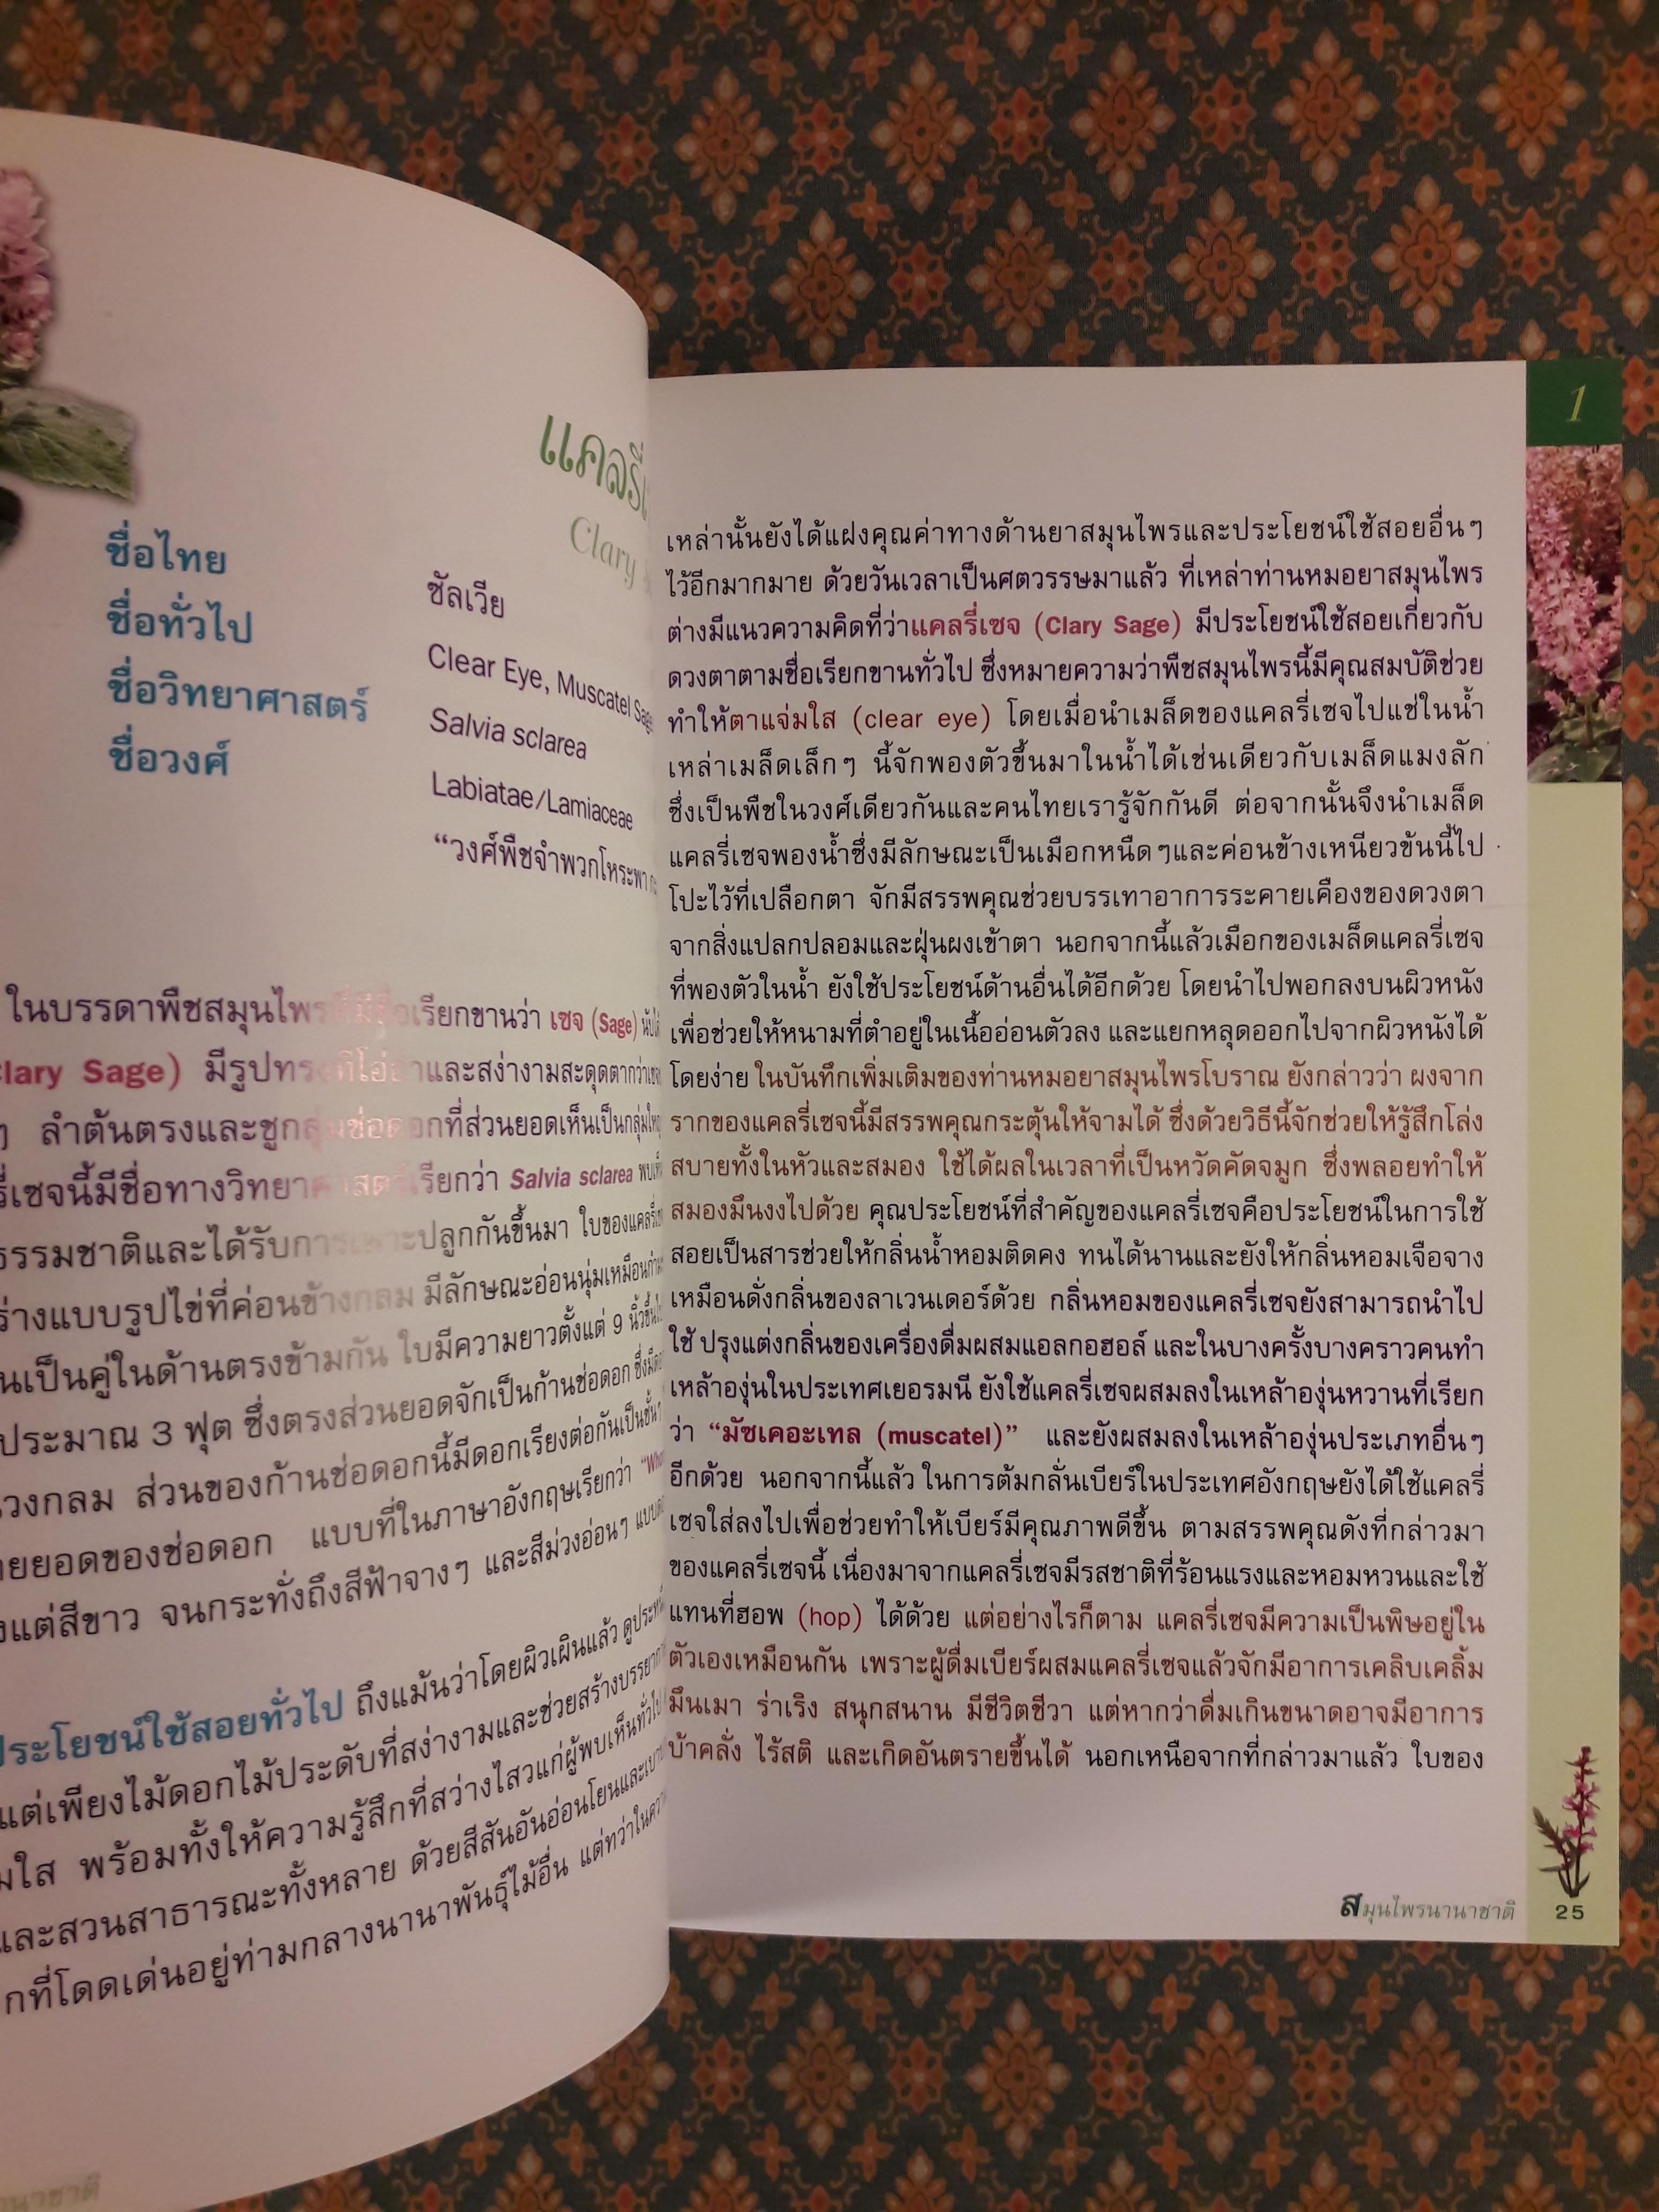 แคลรี่
Clary
ชื่อไทย
ซัลเวีย
ชื่อทั่วไป
Clear Eye, Muscatel Sage
ชื่อวิทยาศาสตร์
Salvia sclarea
ชื่อวงศ์
Labiatae/Lamiaceae
“วงศ์พืชจำพวกโหระพา
ในบรรดาพืชสมุนไพรที่มีชื่อเรียกขานว่า เซจ (Sage)
Clary Sage) มีรูปทรงที่โอ่อ่าและสง่างามสะดุดตากว่า
ๆ ลำต้นตรงและชูกลุ่มช่อดอกที่ส่วนยอดเห็นเป็นกลุ่ม
รี่เซจนี้มีชื่อทางวิทยาศาสตร์เรียกว่า Salvia sclarea
ธรรมชาติและได้รับการเพาะปลูกกันขึ้นมา ใบของ
ร่างแบบรูปไข่ที่ค่อนข้างกลม มีลักษณะอ่อนนุ่มเหมือน
นเป็นคู่ในด้านตรงข้ามกัน ใบมีความยาวตั้งแต่ 9 นิ้วขึ้น
ประมาณ 3 ฟุต ซึ่งตรงส่วนยอดจักเป็นก้านช่อดอก
วงกลม ส่วนของก้านช่อดอกนี้มีดอกเรียงต่อกันเป็นชั้น
ยยอดของช่อดอก แบบที่ในภาษาอังกฤษเรียกว่า
งแต่สีขาว จนกระทั่งถึงสีฟ้าจางๆ และสีม่วงอ่อนๆ
ประโยชน์ใช้สอยทั่วไป ถึงแม้นว่าโดยผิวเผินแล้ว
แต่เพียงไม้ดอกไม้ประดับที่สง่างามและช่วยสร้าง
มใส พร้อมทั้งให้ความรู้สึกที่สว่างไสวแก่ผู้พบเห็นทั่วไป
และสวนสาธารณะทั้งหลาย ด้วยสีสันอันอ่อนโยนและ
กที่โดดเด่นอยู่ท่ามกลางนานาพันธุ์ไม้อื่น
1
เหล่านั้นยังได้แฝงคุณค่าทางด้านยาสมุนไพรและประโยชน์ใช้สอยอื่นๆ
ไว้อีกมากมาย ด้วยวันเวลาเป็นศตวรรษมาแล้ว ที่เหล่าท่านหมอยาสมุนไพร
ต่างมีแนวความคิดที่ว่าแคลรี่เซจ (Clary Sage) มีประโยชน์ใช้สอยเกี่ยวกับ
ดวงตาตามชื่อเรียกขานทั่วไป ซึ่งหมายความว่าพืชสมุนไพรนี้มีคุณสมบัติช่วย
ทำให้ตาแจ่มใส (clear eye) โดยเมื่อนำเมล็ดของแคลรี่เซจไปแช่ในน้ำ
เหล่าเมล็ดเล็กๆ นี้จักพองตัวขึ้นมาในน้ำได้เช่นเดียวกับเมล็ดแมงลัก
ซึ่งเป็นพืชในวงศ์เดียวกันและคนไทยเรารู้จักกันดี ต่อจากนั้นจึงนำเมล็ด
แคลรี่เซจพองน้ำซึ่งมีลักษณะเป็นเมือกหนืดๆและค่อนข้างเหนียวข้นนี้ไป
โปะไว้ที่เปลือกตา จักมีสรรพคุณช่วยบรรเทาอาการระคายเคืองของดวงตา
จากสิ่งแปลกปลอมและฝุ่นผงเข้าตา นอกจากนี้แล้วเมือกของเมล็ดแคลรี่เซจ
ที่พองตัวในน้ำ ยังใช้ประโยชน์ด้านอื่นได้อีกด้วย โดยนำไปพอกลงบนผิวหนัง
เพื่อช่วยให้หนามที่ตำอยู่ในเนื้ออ่อนตัวลง และแยกหลุดออกไปจากผิวหนังได้
โดยง่าย ในบันทึกเพิ่มเติมของท่านหมอยาสมุนไพรโบราณ ยังกล่าวว่า ผงจาก
รากของแคลรี่เซจนี้มีสรรพคุณกระตุ้นให้จามได้ ซึ่งด้วยวิธีนี้จักช่วยให้รู้สึกโล่ง
สบายทั้งในหัวและสมอง ใช้ได้ผลในเวลาที่เป็นหวัดคัดจมูก ซึ่งพลอยทำให้
สมองมึนงงไปด้วย คุณประโยชน์ที่สำคัญของแคลรี่เซจคือประโยชน์ในการใช้
สอยเป็นสารช่วยให้กลิ่นน้ำหอมติดคง ทนได้นานและยังให้กลิ่นหอมเจือจาง
เหมือนดั่งกลิ่นของลาเวนเดอร์ด้วย กลิ่นหอมของแคลรี่เซจยังสามารถนำไป
ใช้ ปรุงแต่งกลิ่นของเครื่องดื่มผสมแอลกอฮอล์ และในบางครั้งบางคราวคนทำ
เหล้าองุ่นในประเทศเยอรมนี ยังใช้แคลรี่เซจผสมลงในเหล้าองุ่นหวานที่เรียก
ว่า “มัซเคอะเทล (muscatel)” และยังผสมลงในเหล้าองุ่นประเภทอื่นๆ
อีกด้วย นอกจากนี้แล้ว ในการต้มกลั่นเบียร์ในประเทศอังกฤษยังได้ใช้แคลรี่
เซจใส่ลงไปเพื่อช่วยทำให้เบียร์มีคุณภาพดีขึ้น ตามสรรพคุณดังที่กล่าวมา
ของแคลรี่เซจนี้ เนื่องมาจากแคลรี่เซจมีรสชาติที่ร้อนแรงและหอมหวนและใช้
แทนที่ฮอพ (hop) ได้ด้วย แต่อย่างไรก็ตาม แคลรี่เซจมีความเป็นพิษอยู่ใน
ตัวเองเหมือนกัน เพราะผู้ดื่มเบียร์ผสมแคลรี่เซจแล้วจักมีอาการเคลิบเคลิ้ม
มึนเมา ร่าเริง สนุกสนาน มีชีวิตชีวา แต่หากว่าดื่มเกินขนาดอาจมีอาการ
บ้าคลั่ง ไร้สติ และเกิดอันตรายขึ้นได้ นอกเหนือจากที่กล่าวมาแล้ว ใบของ
สมุนไพรนานาชาติ 25